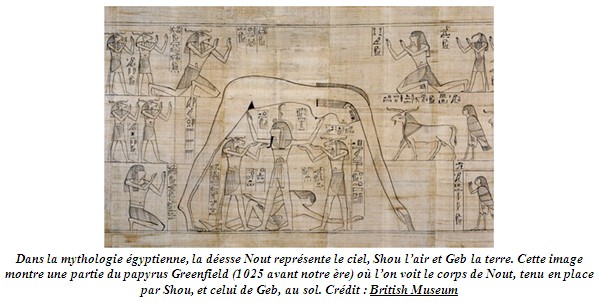 Dans la mythologie égyptienne, la déesse Nout représente le ciel, Shou l’air et Geb la terre. Cette image
montre une partie du papyrus Greenfield (1025 avant notre ère) où l’on voit le corps de Nout, tenu en place
par Shou, et celui de Geb, au sol. Crédit : British Museum